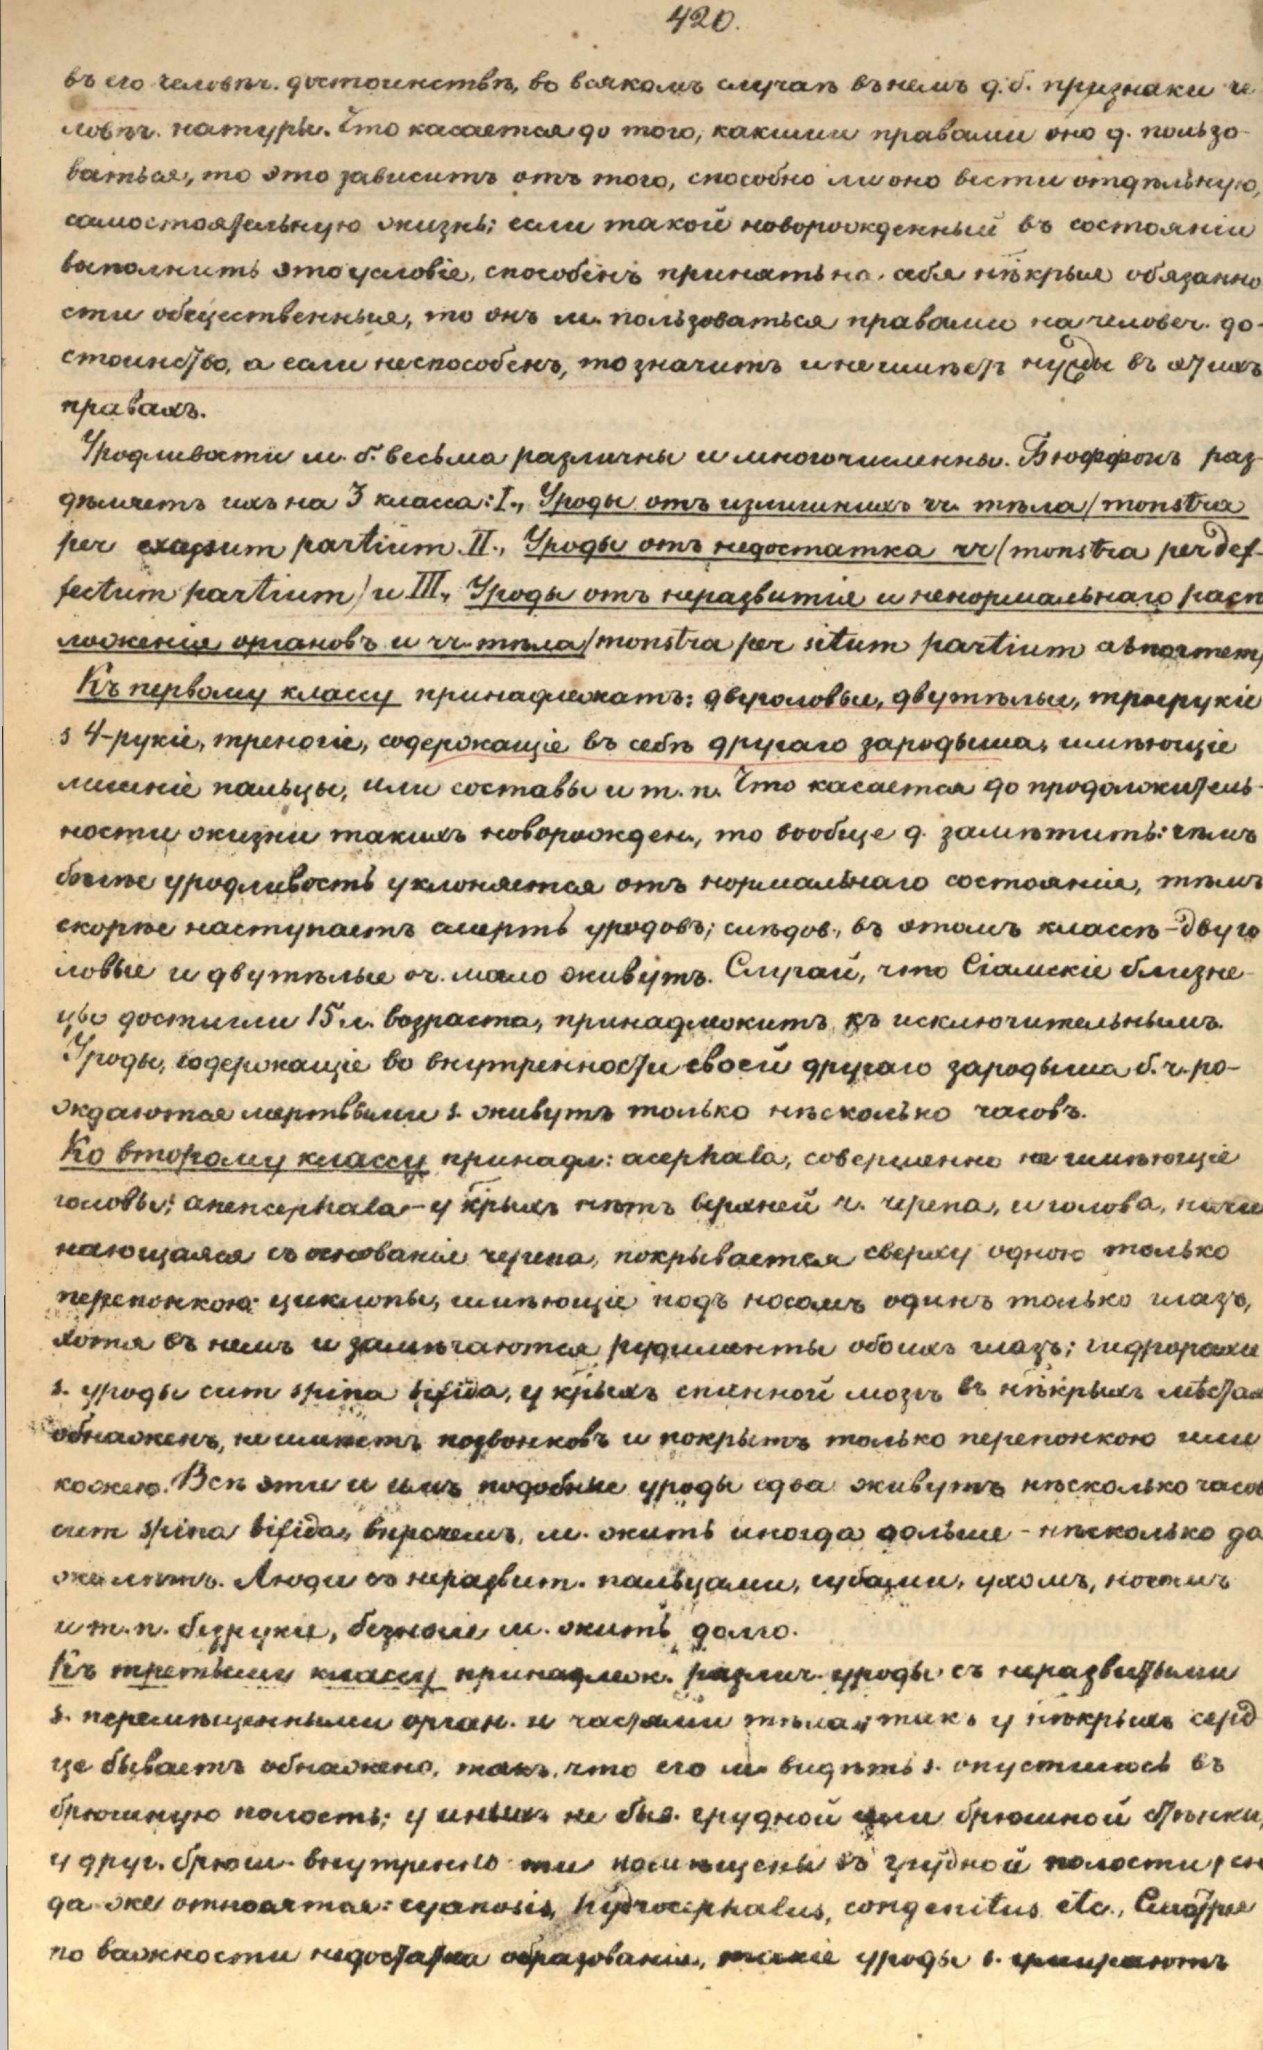 420.
въ его человѣч. достоинствѣ, во всякомъ случаѣ въ немъ д. б. признаки че-
ловѣч. натуры. Что касается до того, какими правами оно д. пользо-
ваться, то это зависитъ отъ того, способно ли оно вести отдѣльную,
самостоятельную жизнь; если такой новорожденный въ состояніи
выполнить это условіе, способенъ принять на себя нѣкрыя обязанно
сти общественныя, то онъ м. пользоваться правами на человѣч. до-
стоинство, а если неспособенъ, то значитъ и не имѣетъ нужды въ этихъ
правахъ.
Уродливости м. б. весьма различны и многочисленны. Бюффонъ раз-
дѣляетъ ихъ на 3 класса: I., Уроды отъ излишнихъ чч. тѣла /monstra
per excessum partium. II., Уроды отъ недостатка чч /monstra per def-
fectum partium/ и III., Уроды отъ неразвитія и ненормальнаго расп
ложенія органовъ и чч. тѣла /monstra per situm partium abnormem/
Къ первому классу принадлежатъ: двуголовые, двутѣлые, трерукіе
s 4-рукіе, треногіе, содержащіе въ себѣ другаго зародыша, имѣющіе
лишніе пальцы, или составы и т. п. Что касается до продолжитель-
ности жизни такихъ новорожден., то вообще д. замѣтить: чѣмъ
болѣе уродливость уклоняется отъ нормальнаго состоянія, тѣмъ
скорѣе наступаетъ смерть уродовъ; слѣдов., въ этомъ классѣ - двуго
ловые и двутѣлые оч. мало живутъ. Случай, что Сіамскіе близне-
цы достигли 15 л. возраста, принадлежитъ къ исключительнымъ.
Уроды, содержащіе во внутренности своей другаго зародыша б. ч. ро-
ждаются мертвыми s. живутъ только нѣсколько часовъ.
Ко второму классу принадл: acephala, совершенно не имѣющіе
головы; anencephala - у крыхъ нѣтъ верхней ч. черепа, и голова, начи
нающаяся съ основанія черепа, покрывается сверху одною только
перепонкою; циклопы, имѣющіе подъ носомъ одинъ только глазъ,
хотя въ немъ и замѣчаются рудименты обоихъ глазъ; гидрорахи
s. уроды cum spina bifida, у крыхъ спинной мозгъ въ нѣкрыхъ мѣстахъ
обнаженъ, не имѣетъ позвонковъ и покрытъ только перепонкою или
кожею. Всѣ эти и имъ подобные уроды едва живутъ нѣсколько часов
cum spina bifida, впрочемъ, м. жить иногда дольше - нѣсколько да
же лѣтъ. Люди съ неразвит. пальцами, губами, ухомъ, носомъ
и т. п. безрукіе, безногіе м. жить долго.
Къ третьему классу принадлеж. различ. уроды съ неразвитыми
s. перемѣщенными орган. и частями тѣла, такъ у нѣкрыхъ серд
це бываетъ обнажено, такъ что его м. видѣть s. опустилось въ
брюшную полость; у иныхъ не быв. грудной или брюшной стѣнки,
у друг. брюш. внутренно-сти помѣщены въ грудной полости; сю
да же относятся: cyanosis, hydrocephalus, congenitus etc., Смотря
по важности недостатка образованія, такіе уроды s. умираютъ